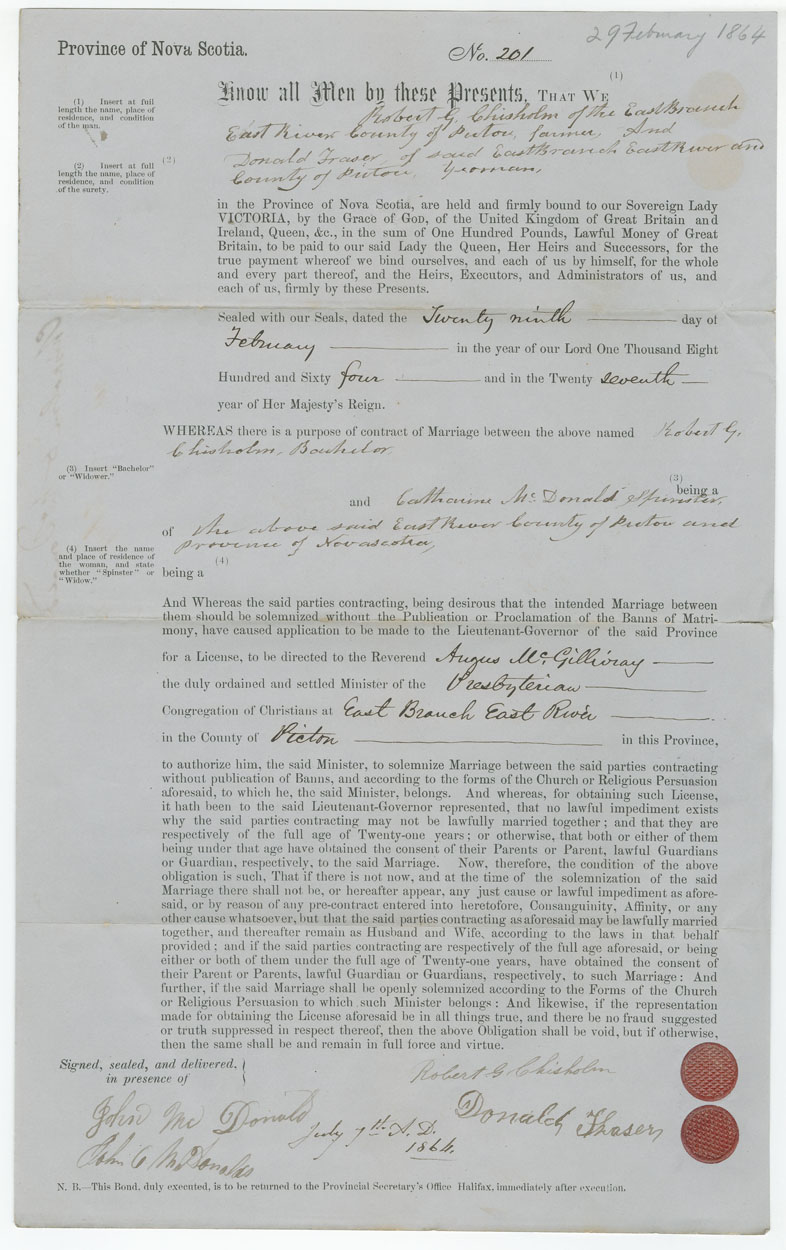 29 February 1864
Province of Nova Scotia.
No. 201
(1) Insert at full
length the name, place of
residence, and condition
of the man.
(2) Insert at full
length the name, place of
residence, and condition
of the surety.
Know all Men by these Presents, THAT WE (1)
Robert G. Chisholm of the East Branch
East River County of Pictou, farmer, And
(2) Donald Fraser, of said East Branch East River and
County of Pictou, Yeoman,
in the Province of Nova Scotia, are held and firmly bound to our Sovereign Lady
VICTORIA, by the Grace of GOD, of the United Kingdom of Great Britain and
Ireland, Queen, &c., in the sum of One Hundred Pounds, Lawful Money of Great
Britain, to be paid to our said Lady the Queen, Her Heirs and Successors, for the
true payment whereof we bind ourselves, and each of us by himself, for the whole
and every part thereof, and the Heirs, Executors, and Administrators of us, and
each of us, firmly by these Presents.
Sealed with our Seals, dated the Twenty ninth day of
February in the year of our Lord One Thousand Eight
Hundred and Sixty four and in the Twenty seventh
year of Her Majesty's Reign.
WHEREAS there is a purpose of contract of Marriage between the above named Robert G.
Chisholm, Bachelor
(3) Insert "Bachelor"
or "Widower."
(3) being a
and Catharine Mc Donald Spinster,
of the above said East River County of Pictou and
Province of Novascotia,
(4) Insert the name
and place of residence of
the woman, and state
whether "Spinster" or
"Widow."
being a (4)
And Whereas the said parties contracting, being desirous that the intended Marriage between
them should be solemnized without the Publication or Proclamation of the Banns of Matri-
mony, have caused application to be made to the Lieutenant-Governor of the said Province
for a License, to be directed to the Reverend Angus Mc Gillivray
the duly ordained and settled Minister of the Presbyterian
Congregation of Christians at East Branch East River
in the County of Pictou in this Province,
to authorize him, the said Minister, to solemnize Marriage between the said parties contracting
without publication of Banns, and according to the forms of the Church or Religious Persuasion
aforesaid, to which he, the said Minister, belongs. And whereas, for obtaining such License,
it hath been to the said Lieutenant-Governor represented, that no lawful impediment exists
why the said parties contracting may not be lawfully married together; and that they are
respectively of the full age of Twenty-one years; or otherwise, that both or either of them
being under that age have obtained the consent of their Parents or Parent, lawful Guardians
or Guardian, respectively, to the said Marriage. Now, therefore, the condition of the above
obligation is such, That if there is not now, and at the time of the solemnization of the said
Marriage there shall not be, or hereafter appear, any just cause or lawful impediment as afore-
said, or by reason of any pre-contract entered into heretofore, Consanguinity, Affinity, or any
other cause whatsoever, but that the said parties contracting as aforesaid may be lawfully married
together, and thereafter remain as Husband and Wife, according to the laws in that behalf
provided; and if the said parties contracting are respectively of the full age aforesaid, or being
either or both of them under the full age of Twenty-one years, have obtained the consent of
their Parent or Parents, lawful Guardian or Guardians, respectively, to such Marriage: And
further, if the said Marriage shall be openly solemnized according to the Forms of the Church
or Religious Persuasion to which such Minister belongs: And likewise, if the representation
made for obtaining the License aforesaid be in all things true, and there be no fraud suggested
or truth suppressed in respect thereof, then the above Obligation shall be void, but if otherwise,
then the same shall be and remain in full force and virtue.
Signed, sealed, and delivered,
in presence of
Robert G Chisholm
John Mc Donald
Donald Fraser
July 7th A.D.
1864.
John C McDonald
N. B.—This Bond, duly executed, is to be returned to the Provincial Secretary's Office Halifax, immediately after execution.